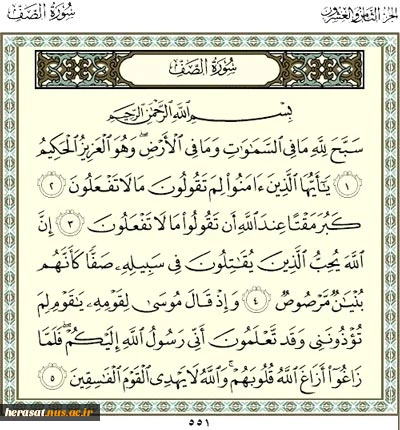 سُورَةُ الصَّفِّ
الجُزْءُ الثَّامِنُ وَالعِشْرُونَ
سُورَةُ الصَّفِّ
بِسْمِ ٱللَّهِ ٱلرَّحْمَٰنِ ٱلرَّحِيمِ
سَبَّحَ لِلَّهِ مَا فِى ٱلسَّمَٰوَٰتِ وَمَا فِى ٱلْأَرْضِ ۖ وَهُوَ ٱلْعَزِيزُ ٱلْحَكِيمُ
١ يَٰٓأَيُّهَا ٱلَّذِينَ ءَامَنُوا۟ لِمَ تَقُولُونَ مَا لَا تَفْعَلُونَ ٢
كَبُرَ مَقْتًا عِندَ ٱللَّهِ أَن تَقُولُوا۟ مَا لَا تَفْعَلُونَ ٣ إِنَّ
ٱللَّهَ يُحِبُّ ٱلَّذِينَ يُقَٰتِلُونَ فِى سَبِيلِهِۦ صَفًّا كَأَنَّهُم
بُنْيَٰنٌ مَّرْصُوصٌ ٤ وَإِذْ قَالَ مُوسَىٰ لِقَوْمِهِۦ يَٰقَوْمِ لِمَ
تُؤْذُونَنِى وَقَد تَّعْلَمُونَ أَنِّى رَسُولُ ٱللَّهِ إِلَيْكُمْ ۖ فَلَمَّا
زَاغُوٓا۟ أَزَاغَ ٱللَّهُ قُلُوبَهُمْ ۚ وَٱللَّهُ لَا يَهْدِى ٱلْقَوْمَ ٱلْفَٰسِقِينَ ٥
٥٥١
herasat.nus.ac.ir